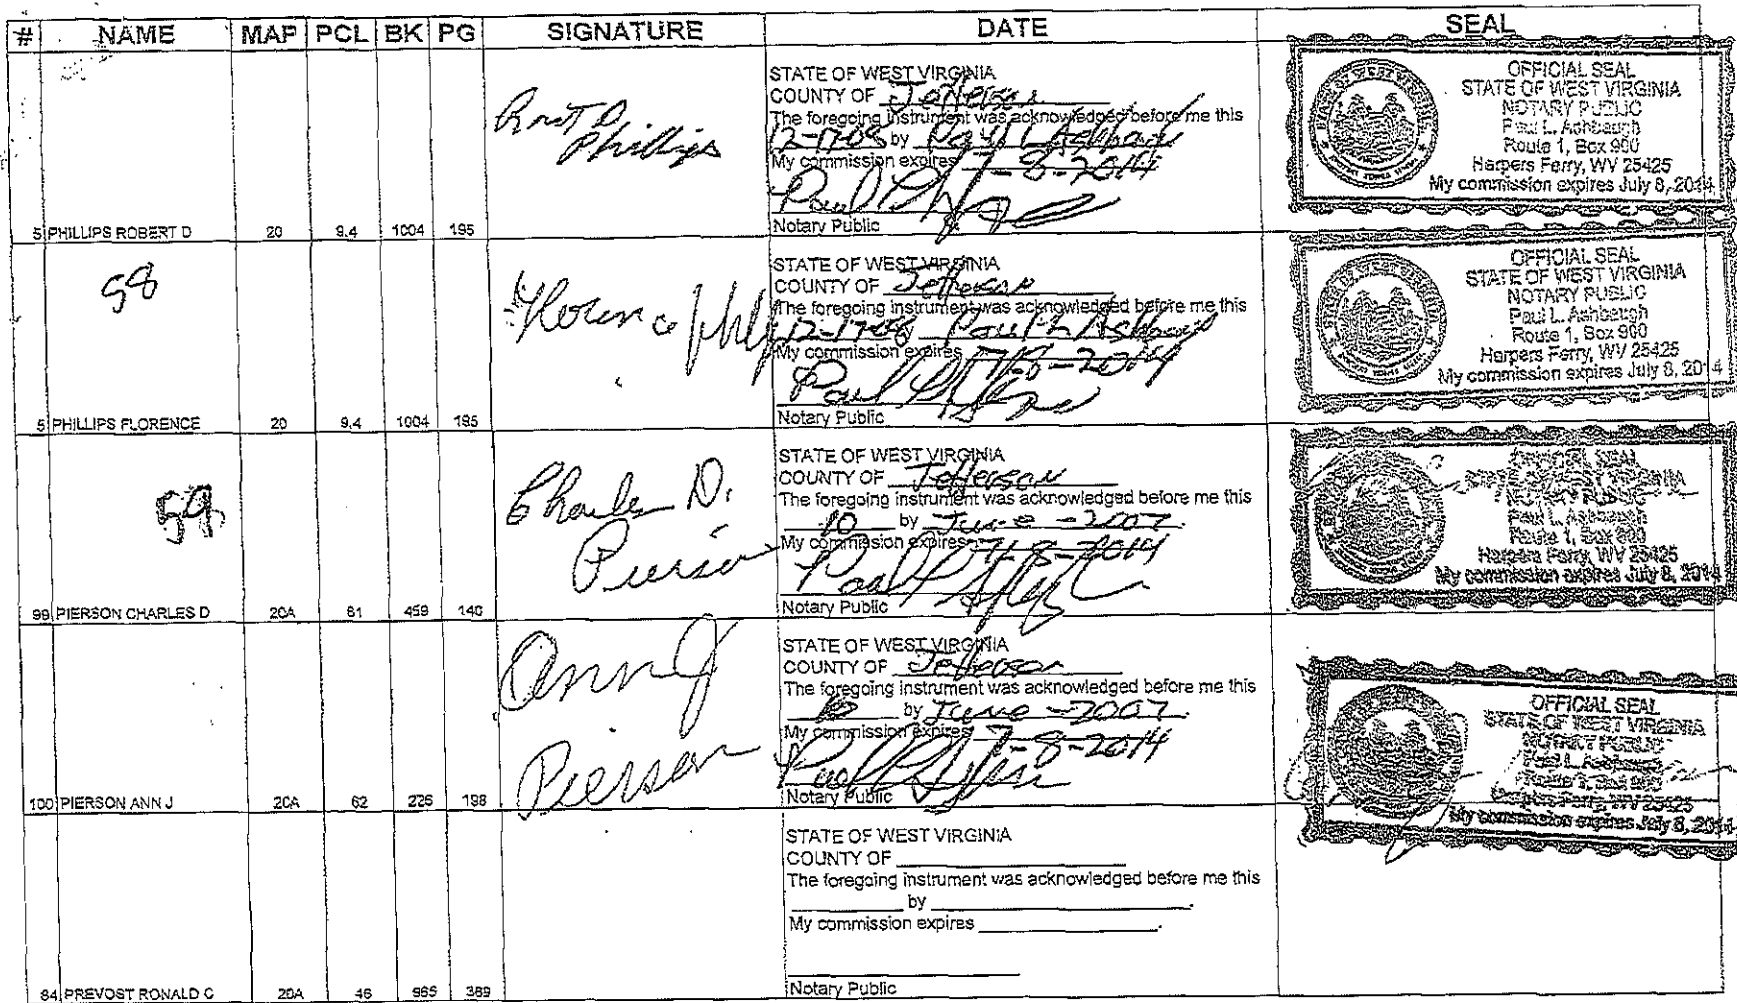 # NAME MAP PCL BK PG SIGNATURE DATE SEAL
Phillips
STATE OF WEST VIRGINIA
COUNTY OF Jefferson
The foregoing instrument was acknowledged before me this
12-17-08 by Paul L Ashbaugh
My commission expires 7-8-2014
Paul
Notary Public
OFFICIAL SEAL
STATE OF WEST VIRGINIA
NOTARY PUBLIC
Paul L. Ashbaugh
Route 1, Box 900
Harpers Ferry, WV 25425
My commission expires July 8, 2014
5 PHILLIPS ROBERT D 20 9.4 1004 195
58
STATE OF WEST VIRGINIA
COUNTY OF Jefferson
The foregoing instrument was acknowledged before me this
12-17-08 Paul L Ashbaugh
My commission expires 7-8-2014
Paul
Notary Public
OFFICIAL SEAL
STATE OF WEST VIRGINIA
NOTARY PUBLIC
Paul L. Ashbaugh
Route 1, Box 900
Harpers Ferry, WV 25425
My commission expires July 8, 2014
5 PHILLIPS FLORENCE 20 9.4 1004 195
59
Charles D.
Pierson
STATE OF WEST VIRGINIA
COUNTY OF Jefferson
The foregoing instrument was acknowledged before me this
10 by June - 2007.
My commission expires 7-8-2014
Paul
Notary Public
OFFICIAL SEAL
STATE OF WEST VIRGINIA
NOTARY PUBLIC
Paul L. Ashbaugh
Route 1, Box 900
Harpers Ferry, WV 25425
My commission expires July 8, 2014
99 PIERSON CHARLES D 20A 61 459 140
Ann J
Pierson
STATE OF WEST VIRGINIA
COUNTY OF Jefferson
The foregoing instrument was acknowledged before me this
10 by June - 2007.
My commission expires 7-8-2014
Paul
Notary Public
OFFICIAL SEAL
STATE OF WEST VIRGINIA
NOTARY PUBLIC
Paul L. Ashbaugh
Route 1, Box 900
Harpers Ferry, WV 25425
My commission expires July 8, 2014
100 PIERSON ANN J 20A 62 226 198
STATE OF WEST VIRGINIA
COUNTY OF
The foregoing instrument was acknowledged before me this
by .
My commission expires .
Notary Public
84 PREVOST RONALD C 20A 46 965 389